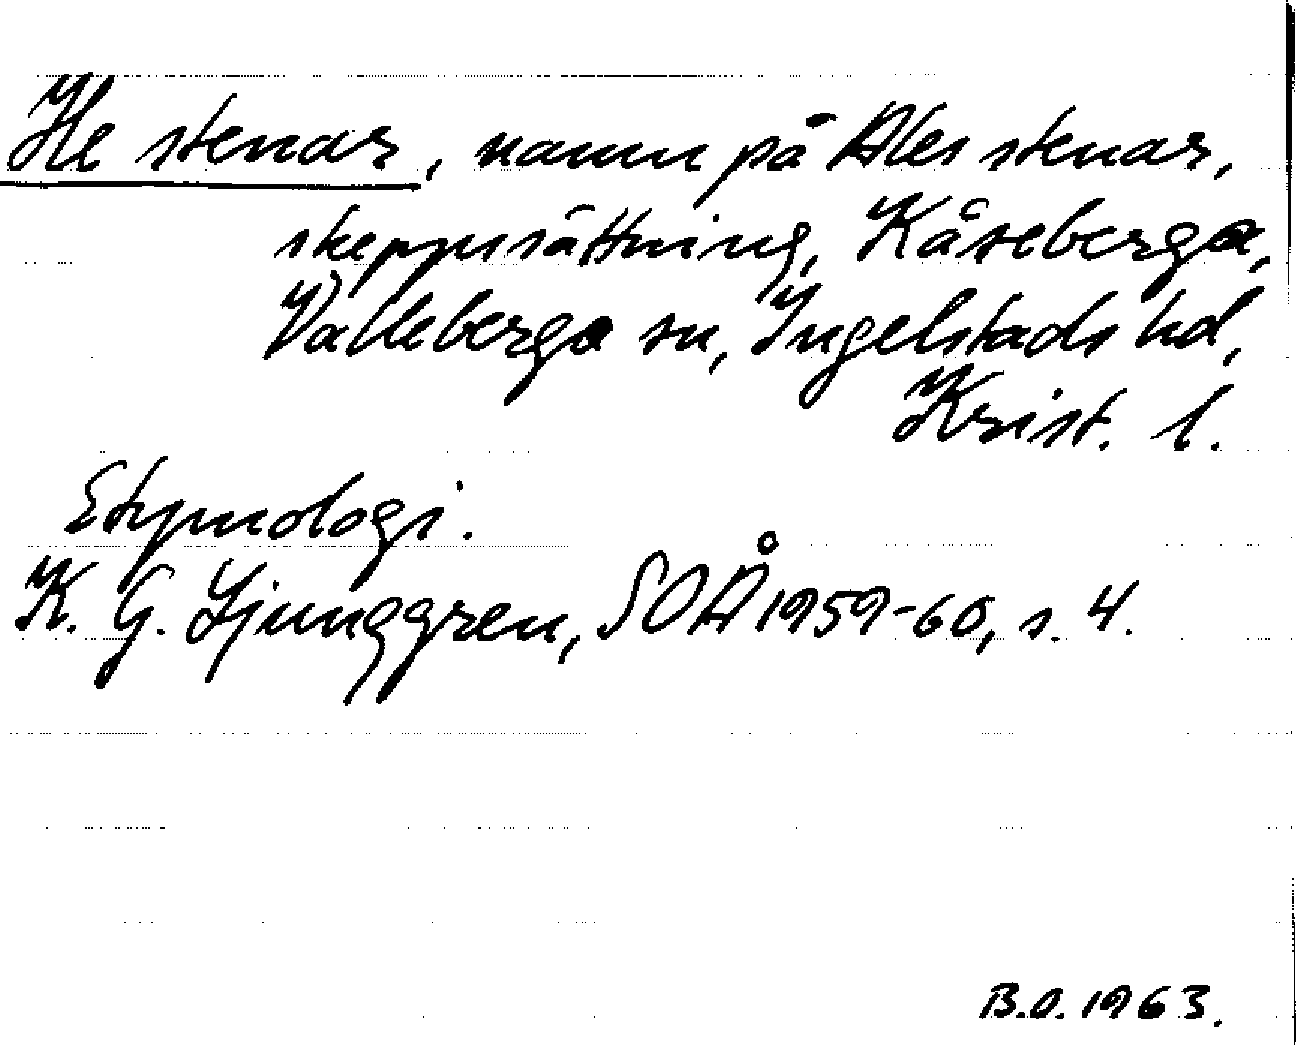 He stenar, namn på Ales stenar,
skeppssättning, Kåseberga,
Valleberga sn, Ingelstads hd,
Krist. l.
Etymologi.
K. G. Ljunggren, SOÅ 1959-60, s. 4.
B.O. 1963.